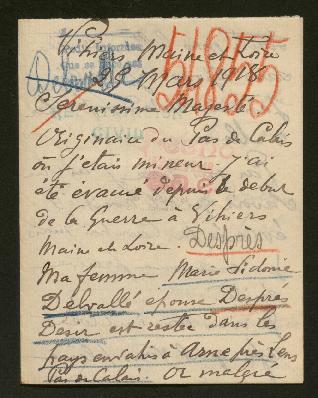 Vihiers Maine et Loire
29 Mars 1918
51855
Serenissime Majesté.
Originaire du Pas de Calais
où j'etais mineur. j'ai
eté evacué depuis le debut
de la Guerre à Vihiers
Maine et Loire. Desprès
Ma femme Marie Sidonie
Delvallé epouse Després
Désir est restée dans les
pays envahis à Asne près Lens
Pas de Calais. Or malgré